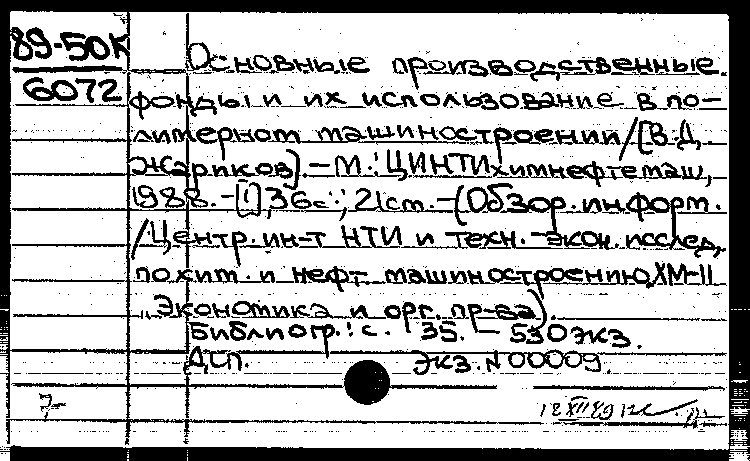 89-50К
6072
Основные производственные
фонды и их использование в по-
лимерном машиностроении/[В.Д.
Жариков]. - М.: ЦИНТИхимнефтемаш,
1988. - [1], 36с.; 21см. - (Обзор. информ.
/Центр. ин-т НТИ и техн.-экон. исслед.
по хим. и нефт. машиностроению, ХМ-11
"Экономика и орг. пр-ва).
Библиогр.: с. 35. - 530 экз.
ДСП. Экз. N 00009.
7-
12 XII 89